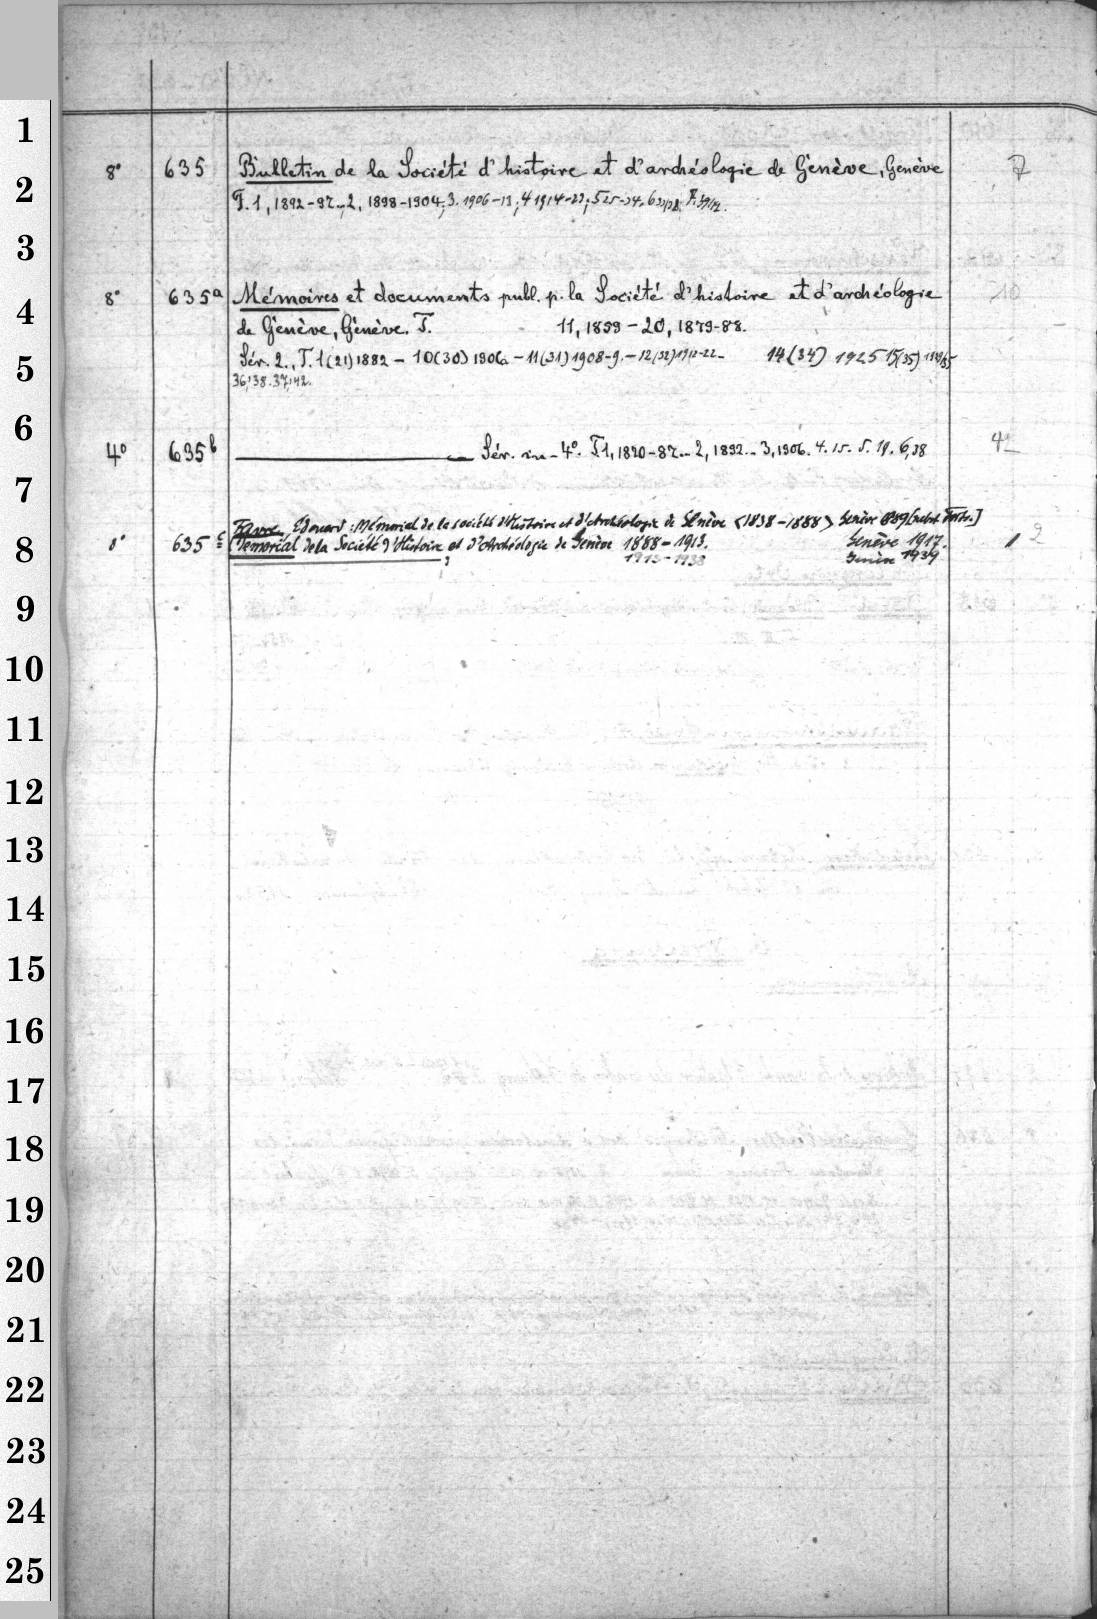 1
8° 635 Bulletin de la Société d'histoire et d'archéologie de Genève, Genève 7
2
T. 1, 1892-97.-, 2, 1898-1904; 3. 1906-13; 4 1914-23; 5 25-34.
3
8° 635a Mémoires et documents publ. p. la Société d'histoire et d'archéologie 10
4
de Genève, Genève. T. 11, 1859-20, 1879-88.
5
Sér. 2., T. 1(21) 1882 - 10(30) 1906. - 11(31) 1908-9. - 12(32) 1912-22- 14(34) 1925 15(35)
36, 38. 37, 42.
6
4° 635b Sér. in-4°. T. 1, 1870-87.- 2, 1892.- 3, 1906. 4. 15. 5. 19. 6, 38 4
7
Favre, Edouard: Mémorial de la société d'Histoire et d'Archéologie de Genève (1838-1888) Genève 1889
8
8° 635c Memorial de la Société d'Histoire et d'Archéologie de Genève 1888-1913. Genève 1917. 1 2
1913-1938 Genève 1939
9
10
11
12
13
14
15
16
17
18
19
20
21
22
23
24
25